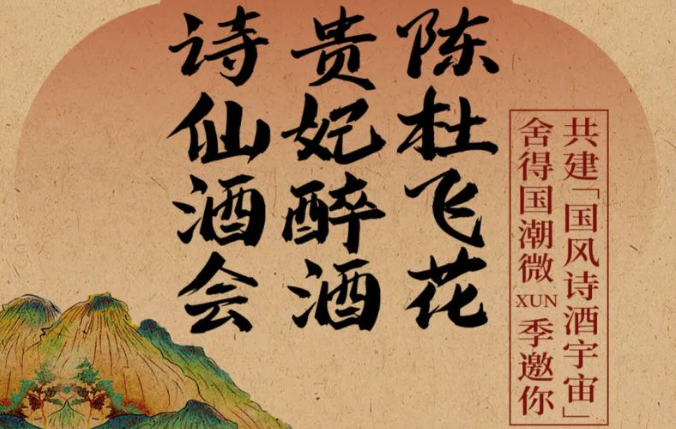 诗仙酒会
贵妃醉酒
陈杜飞花
舍得国潮微XUN季邀你
共建「国风诗酒宇宙」